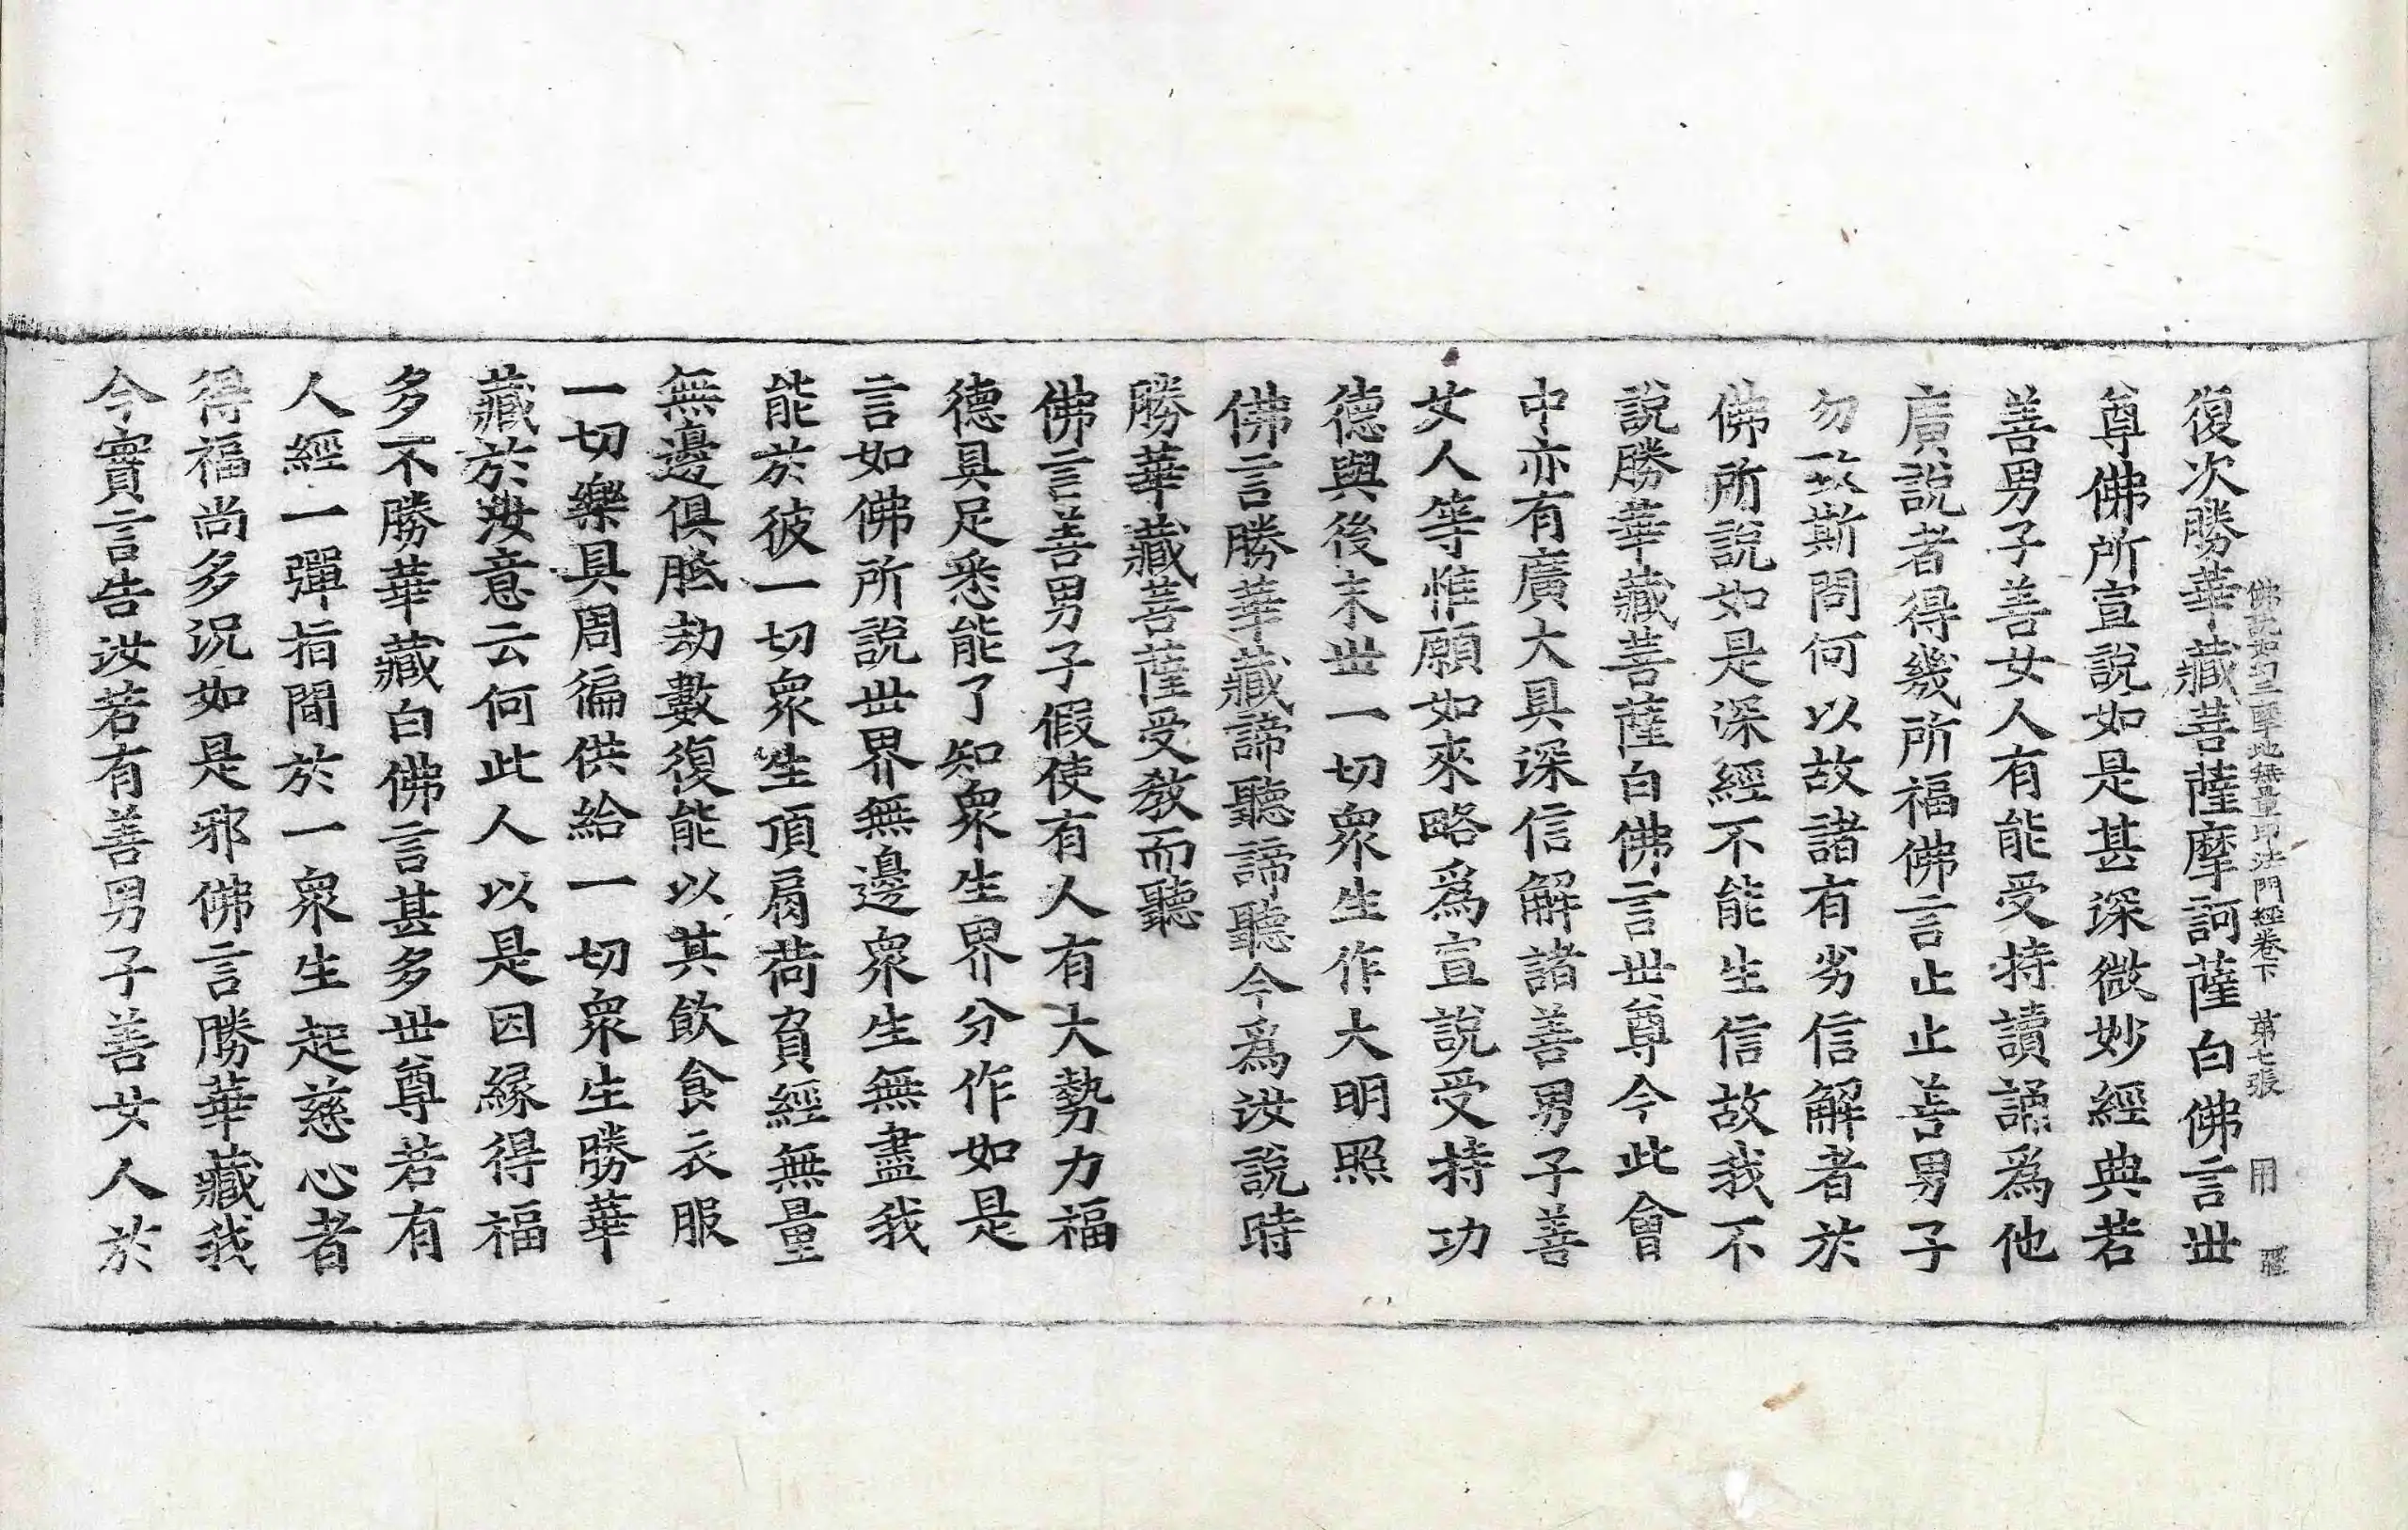 佛說如幻三摩地無量印法門經卷下 第七張 用
復次勝華藏菩薩摩訶薩白佛言世
尊佛所宣說如是甚深微妙經典若
善男子善女人有能受持讀誦爲他
廣說者得幾所福佛言止止善男子
勿致斯問何以故諸有劣信解者於
佛所說如是深經不能生信故我不
說勝華藏菩薩白佛言世尊今此會
中亦有廣大具深信解諸善男子善
女人等惟願如來略爲宣說受持功
德與後末世一切衆生作大明照
佛言勝華藏諦聽諦聽今爲汝說時
勝華藏菩薩受教而聽
佛言善男子假使有人有大勢力福
德具足悉能了知衆生界分作如是
言如佛所說世界無邊衆生無盡我
能於彼一切衆生頂肩荷負經無量
無邊俱胝劫數復能以其飲食衣服
一切樂具周徧供給一切衆生勝華
藏於汝意云何此人以是因緣得福
多不勝華藏白佛言甚多世尊若有
人經一彈指閒於一衆生起慈心者
得福尚多況如是邪佛言勝華藏我
今實言告汝若有善男子善女人於